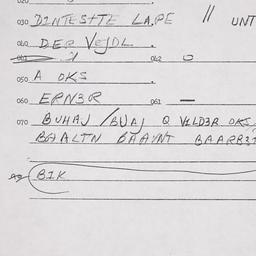 020
030 DINTESTTE LA.PE // UNT
040 DER VEJDL .
041 062
050 A OKS .
060 ERN3R . 061 —
070 BUHAJ /BUAJ Q VELD3R OKS
BAHALTN BAAYNT BAARB3I
BIK